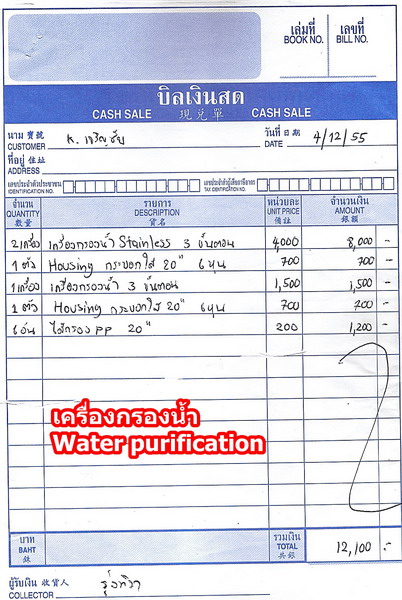 เล่มที่ เลขที่
BOOK NO. BILL NO.
บิลเงินสด
CASH SALE 現兌單 CASH SALE
นาม 寶號
CUSTOMER K. เจริญชัย
วันที่ 日期
DATE 4/12/55
ที่อยู่ 住址
ADDRESS
เลขประจำตัวประชาชน
IDENTIFICATION NO.
เลขประจำตัวผู้เสียภาษีอากร
TAX IDENTIFICATION NO.
จำนวน รายการ หน่วยละ จำนวนเงิน
QUANTITY DESCRIPTION UNIT PRICE AMOUNT
數量 貨名 備註 銀額
2 เครื่อง เครื่องกรองน้ำ Stainless 3 ขั้นตอน 4,000 8,000 -
1 ตัว Housing กระบอกใส 20" 6 หุน 700 700 -
1 เครื่อง เครื่องกรองน้ำ 3 ขั้นตอน 1,500 1,500 -
1 ตัว Housing กระบอกใส 20" 6 หุน 700 700 -
6 อัน ไส้กรอง PP 20" 200 1,200 -
เครื่องกรองน้ำ
Water purification
บาท รวมเงิน
BAHT TOTAL 12,100 -
銖 共銀
ผู้รับเงิน 收貨人
COLLECTOR